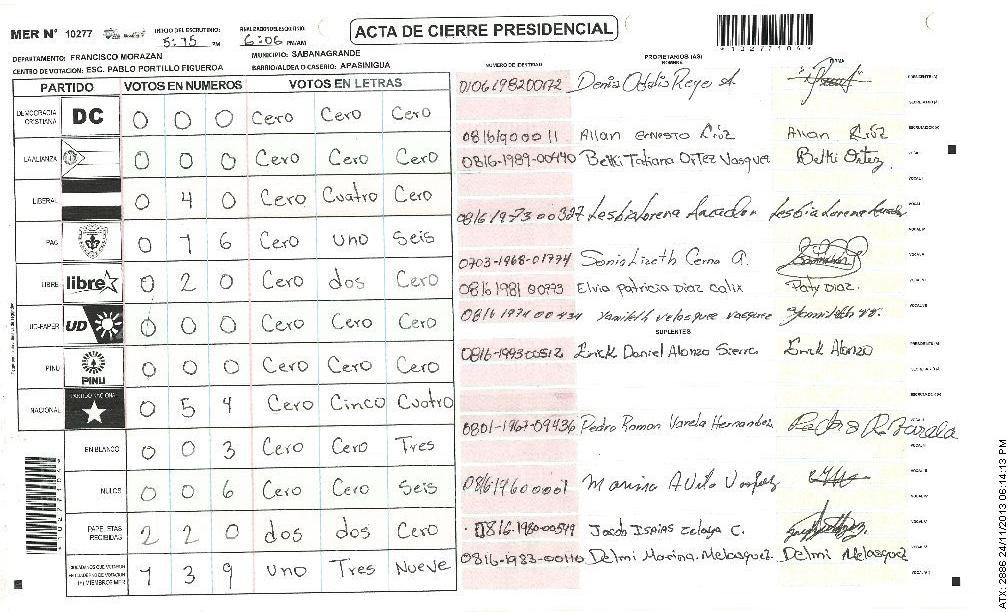 MER N° 10277
INICIO DEL ESCRUTINIO: 5:15 PM
FINALIZACION DEL ESCRUTINIO: 6:06 PM/AM
ACTA DE CIERRE PRESIDENCIAL
DEPARTAMENTO: FRANCISCO MORAZAN MUNICIPIO: SABANAGRANDE
CENTRO DE VOTACION: ESC. PABLO PORTILLO FIGUEROA BARRIO/ALDEA O CASERIO: APASINIGUA
PARTIDO VOTOS EN NUMEROS VOTOS EN LETRAS
DEMOCRACIA CRISTIANA DC 0 0 0 Cero Cero Cero
LA ALIANZA 0 0 0 Cero Cero Cero
LIBERAL 0 4 0 Cero Cuatro Cero
PAC 0 1 6 Cero uno Seis
LIBRE libre 0 2 0 Cero dos Cero
UD-FAPER UD 0 0 0 Cero Cero Cero
PINU PINU 0 0 0 Cero Cero Cero
NACIONAL PARTIDO NACIONAL 0 5 4 Cero Cinco Cuatro
EN BLANCO 0 0 3 Cero Cero Tres
NULOS 0 0 6 Cero Cero Seis
PAPELETAS RECIBIDAS 2 2 0 dos dos Cero
CIUDADANOS QUE VOTARON EN CUADERNO DE VOTACION (+) MIEMBROS MER 1 3 9 uno Tres Nueve
NUMERO DE IDENTIDAD PROPIETARIOS (AS) NOMBRE FIRMA
0106198200172 PRESIDENTE (A)
SECRETARIO (A)
08161900011 Allan Ernesto Cruz Allan Cruz ESCRUTADOR (A)
0816-1989-00440 Betti Tatiana Ortez Vasquez Betti Ortez VOCAL I
VOCAL II
0816 1973 00327
0703-1968-01774 Sonia Lizeth Cerna A.
0816 1981 00773 Elvia Patricia Diaz Calix Paty Diaz.
0816 1974 00434
SUPLENTES
0816-1993-00512 Erick Daniel Alonzo Sierra Erick Alonzo PRESIDENTE (A)
SECRETARIO (A)
ESCRUTADOR (A)
0801-1967-09436 Pedro Ramon Varela Hernandez Pedro R Varela
Marina Avila
0816-1980-00549 Jacob Isaias Zelaya C.
0816-1983-00110 Delmi Marina Melasquez. Delmi Melasquez
ATX: 2886 24/11/2013 06:14:13 PM